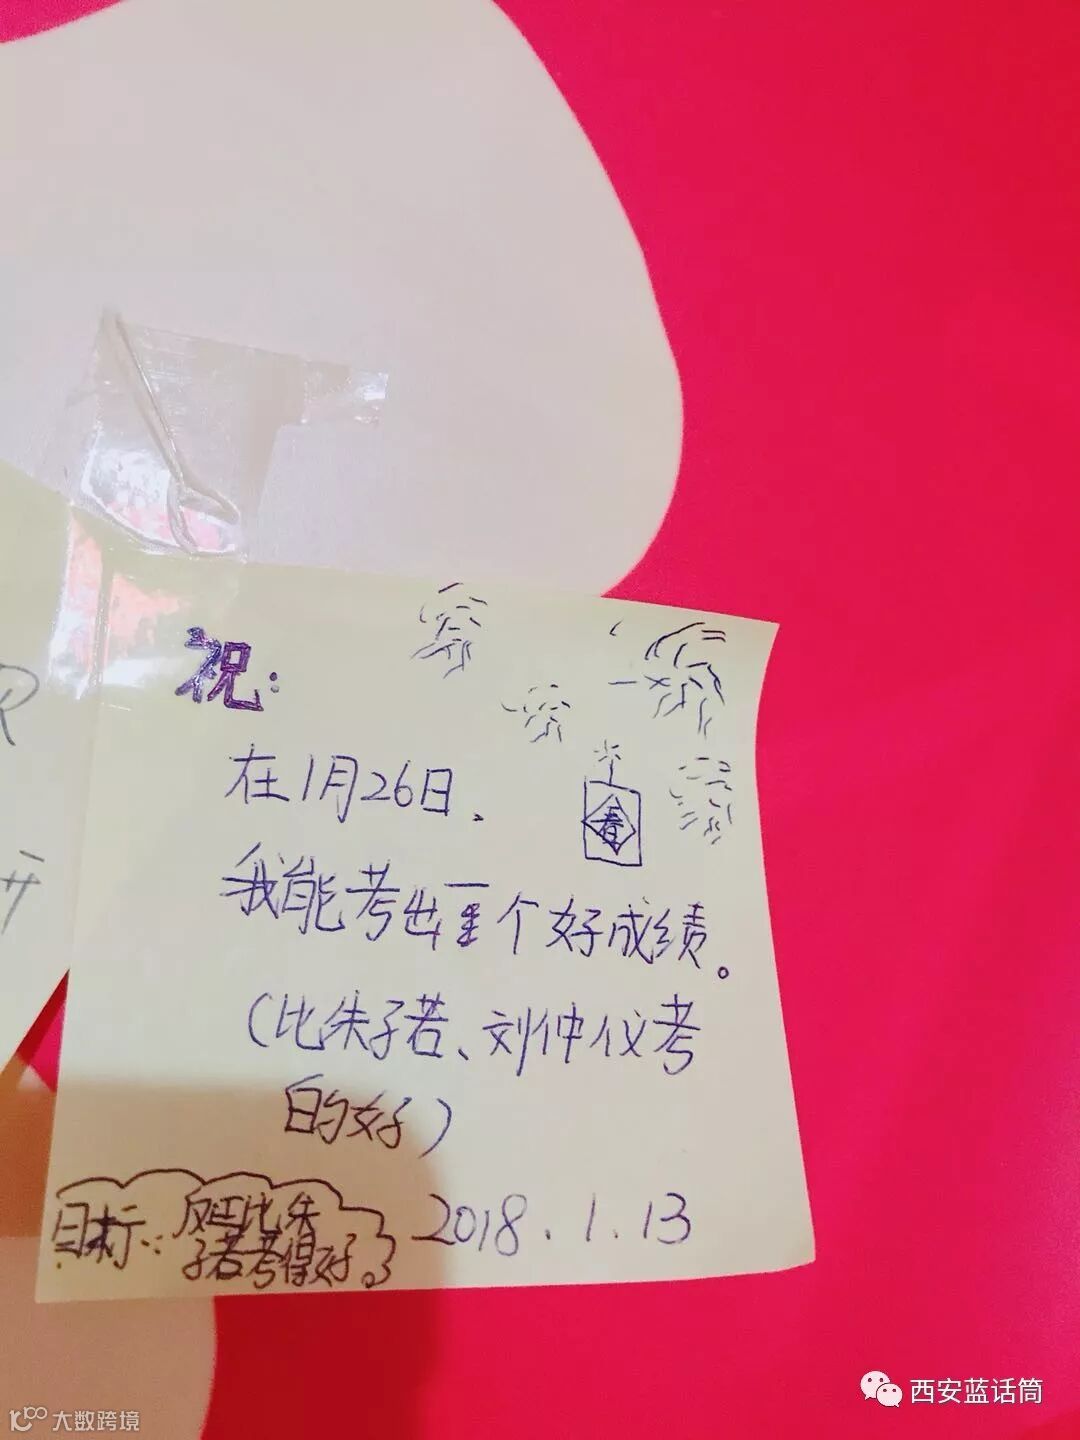 祝：
在1月26日，
春
我能考出一个好成绩。
（比朱子若、刘仲仪考
的好）
目标：反正比朱
子若考得好。
2018.1.13
R
开
西安蓝话筒
大数跨境